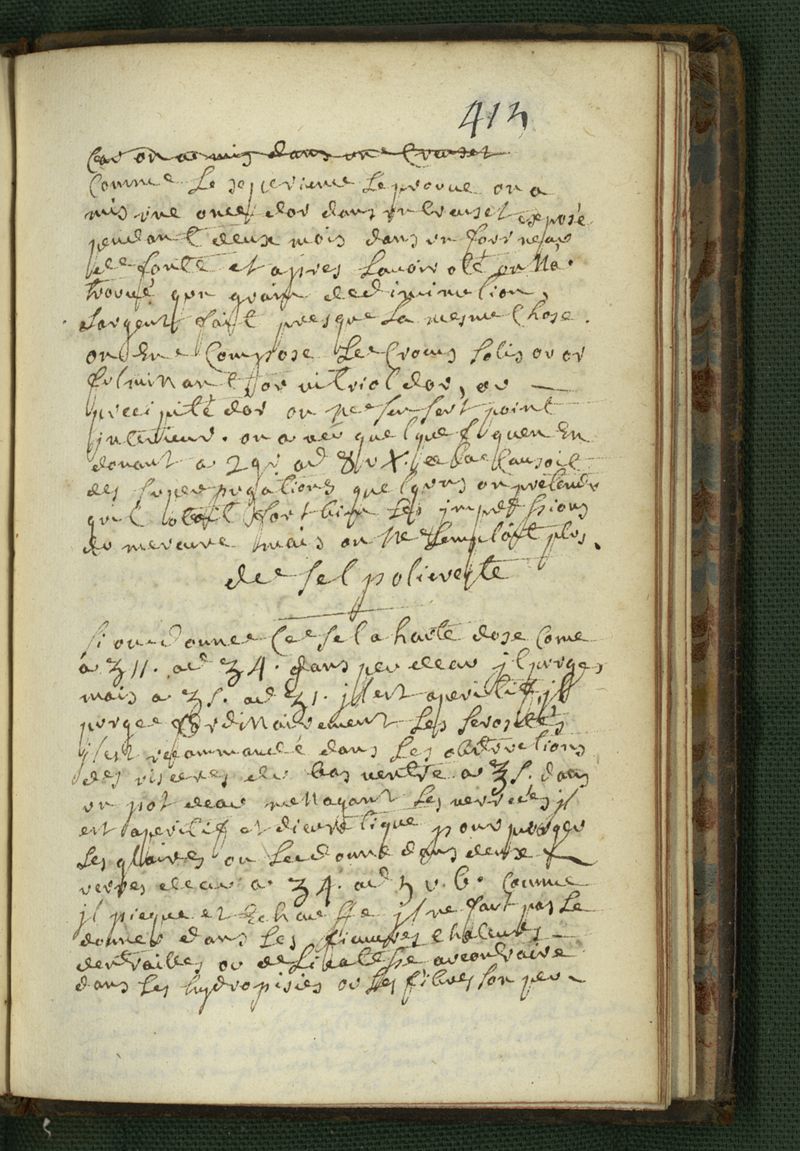 413
Car on a mis dans un Creuset
Comme Le seperience Le prouue on a
mis vne once dor dans vn Creuset exposé
pendant deux mois dans vn fourneau
de fonte et apres Lauoir oté on Na
trouué qun grain de diminution,
Largent fait presque La mesme Chose.
on En Compose Le Crocus solis ou or
fulminant, or vitriol dor, ou
precipité dor on ne sen sert point
jnterieur. on a veu quelque f quen En
donant a 2 gr ad 8 ou X. de La Causoit
des superpurgations quelquns ont pretendu
quil otoit fort bien Les jmpressions
du mercure mais on Ne Lemploit plus.
de sel policreste
si on donne Ce sel a haute dose Come
a ʒ11. ad ʒ4. dans peu deau jl purge
mais a ʒs. ad ʒ1. jl est aperitif jl
purge ordinairement Les serosités
jl est recommandé dans Les obstructions
des visceres du bas ventre a ʒs. dans
vn pot deau menagant Les verrées jl
est aperitif et diuretique pour purger
Les glaires on Le donne dans deux
verres deau a ʒ4. ad v. 6. Comme
jl picque et Echauffe jl ne faut pas Le
donner dans Les fieures Chaleurs
dentrailles ou delicatesse au contraire
dans Les hydropisies ou Les fibres son peu